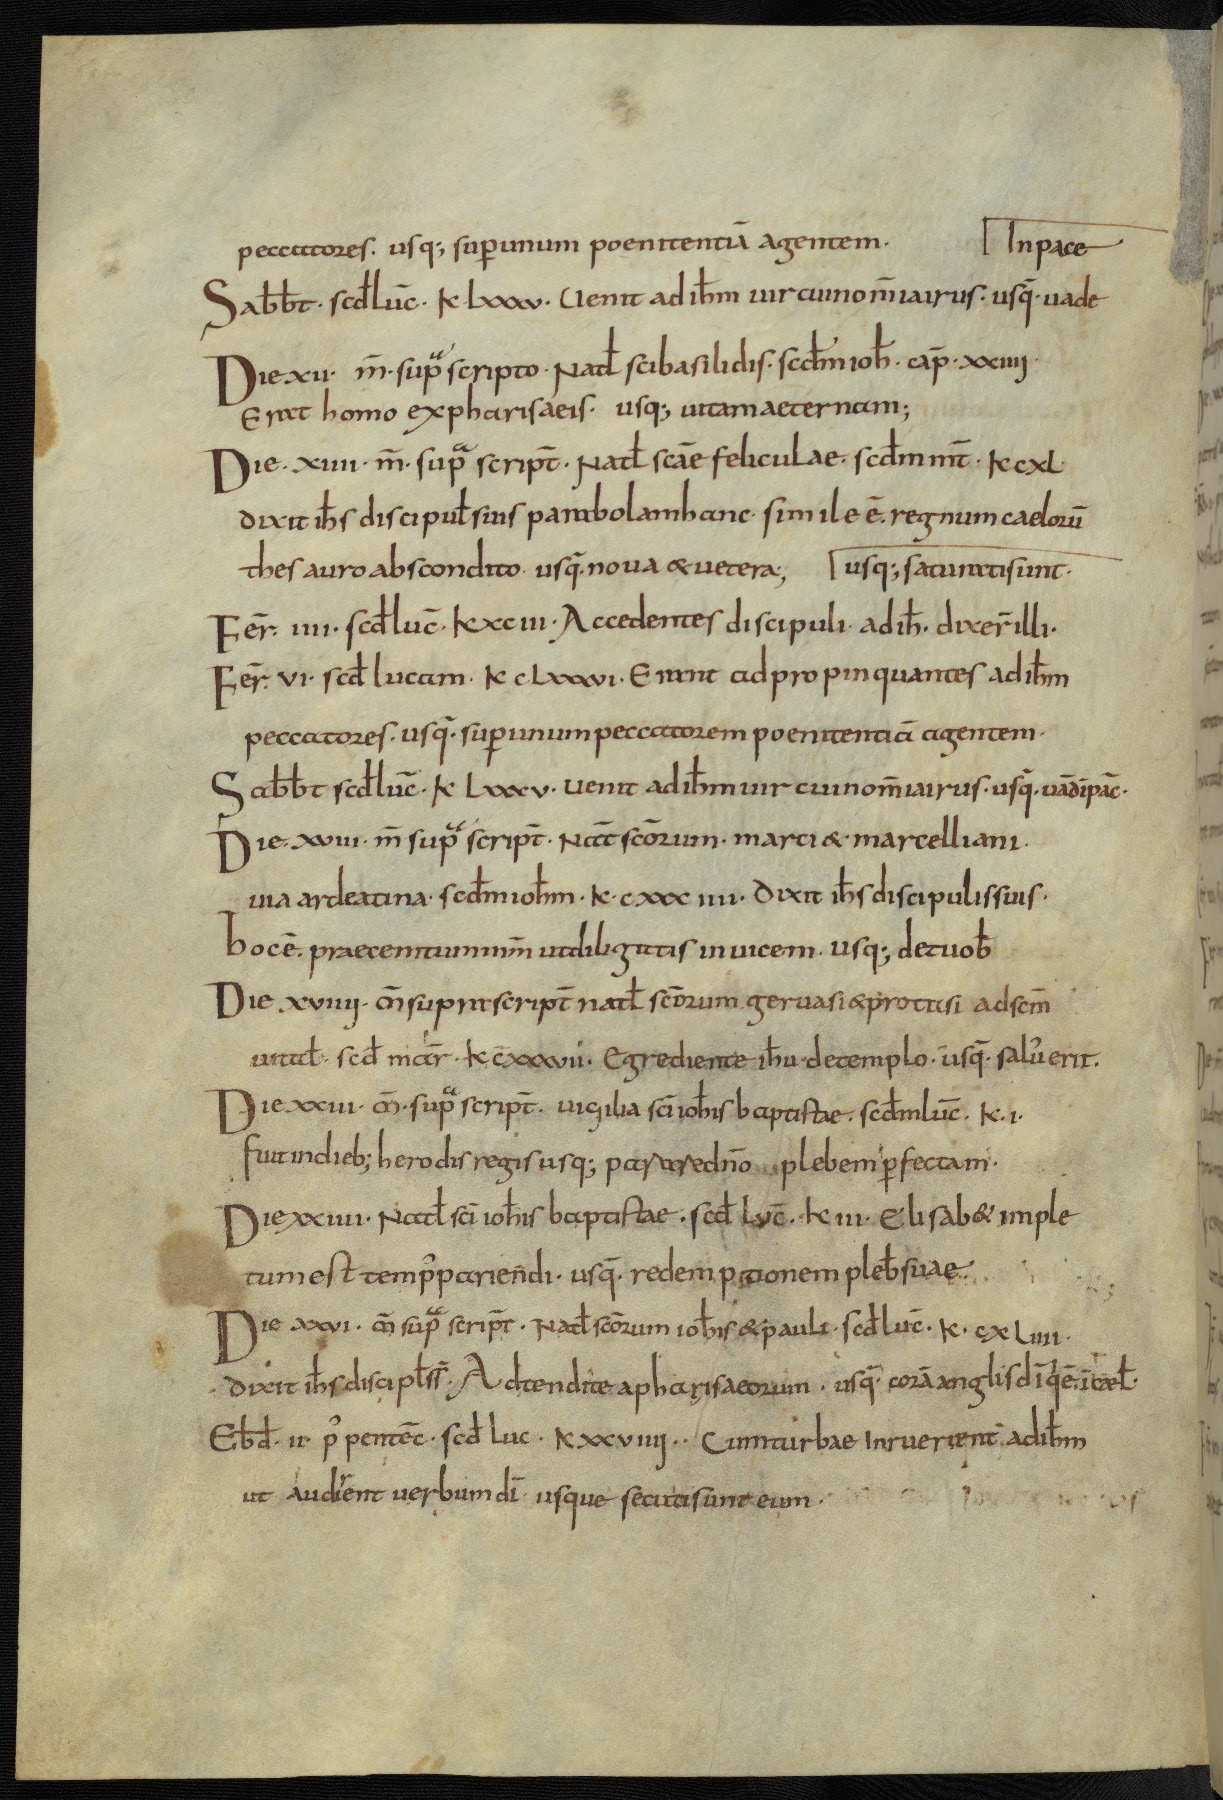 peccatores. usq; sup unum poenitentiā agentem. In pace
Sabb̄t. scd̄ luc̄. K lxxxv. Uenit ad ih̄m uir cui nom̄ iairus. usq̄. uade
Die xii. m̄. supͣ scripto. Natl̄ sci basilidis. scd̄m ioh̄. cap̄. xxiiii.
Erat homo ex pharisaeis. usq; uitam aeternam;
Die. xiiii. m̄. supͣ script̄. Natl̄ scāe feliculae. scd̄m mt̄. K cxl
dixit ih̄s discipul̄ suis parabolam hanc. simile ē. regnum caelorū
thesauro abscondito. usq̄. noua & uetera; usq; saturati sunt.
Fer̄. iiii. scd̄ luc̄. K xciii. Accedentes discipuli. ad ih̄. dixer̄ illi.
Fer̄. vi. scd̄ lucam. K clxxxvi. Erant adpropinquantes ad ih̄m
peccatores. usq̄. sup unum peccatorem poenitentiā agentem.
Sabb̄t scd̄ luc̄. K lxxxv. uenit ad ih̄m uir cui nom̄ iairus. usq̄. uād īpāc.
Die. xviii. m̄ supͣ script̄. Nat̄ scōrum. marci & marcelliani.
uia ardeatina. scd̄m ioh̄m. K. cxxxiiii. Dixit ih̄s discipulis suis.
hoc ē. praeceptum mm̄ ut diligatis inuicem. usq; det uob̄
Die xviiii. m̄ supra script̄ natl̄ scōrum geruasi & protasi ad scm̄
uital̄. scd̄ mar̄. K cxxxvii. Egrediente ih̄u de templo. usq̄. salu᷒ erit.
Die xxiii. m̄. supͣ script̄. uigilia scī ioh̄is baptistae. scd̄m luc̄. K. i.
fuit in dieb; herodis regis usq; parare dn̄o plebem pfectam.
Die xxiiii. Natl̄ scī ioh̄is baptistae. scd̄ luc̄. K iii. Elisab& imple
tum est temp᷒ pariendi. usq̄. redemptionem pleb̄ suae
Die xxvi. m̄ supͣ script̄. Natl̄ scōrum ioh̄is & pauli. scd̄ luc̄. K. cxliiii.
dixit ih̄s discipl̄ s̄s̄. Adtendite a pharisaeorum. usq̄. corā anglis dī q̄ ē. ī cael̄.
Ebd̄. ii p᷒ pentec̄. scd̄ luc. K xxviiii. Cum turbae inruerent ad ih̄m
ut audirent uerbum dī usque secuti sunt eum.